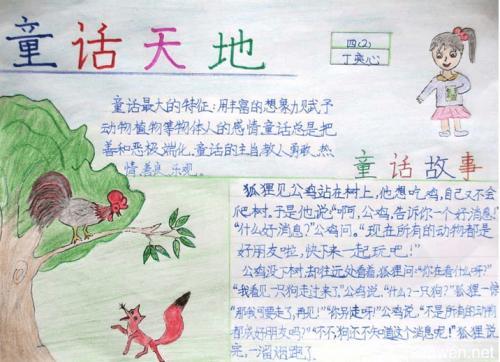 童话天地
四(2)
丁奕心
童话最大的特征:用丰富的想象力赋予
动物植物等物体人的感情,童话总是把
善和恶极端化,童话的主旨教人勇敢、热
情、善良、乐观。。
童话故事
狐狸见公鸡站在树上,他想吃鸡,自己又不会
爬树。于是他说:“啊,公鸡,告诉你一个好消息!”
“什么好消息?”公鸡问。“现在所有的动物都是
好朋友啦,快下来一起玩吧!”
公鸡没下树,却往远处看着,狐狸问:“你在看什么呀?”
“我看见一只狗走过来了。”公鸡说,“什么?一只狗?”狐狸一惊
“那我可要走了,再见!”“你别走呀!”公鸡说,“不是所有的动物
都成好朋友吗?”“不,不,狗还不知道这个消息呢!”狐狸说
完,一溜烟跑了。